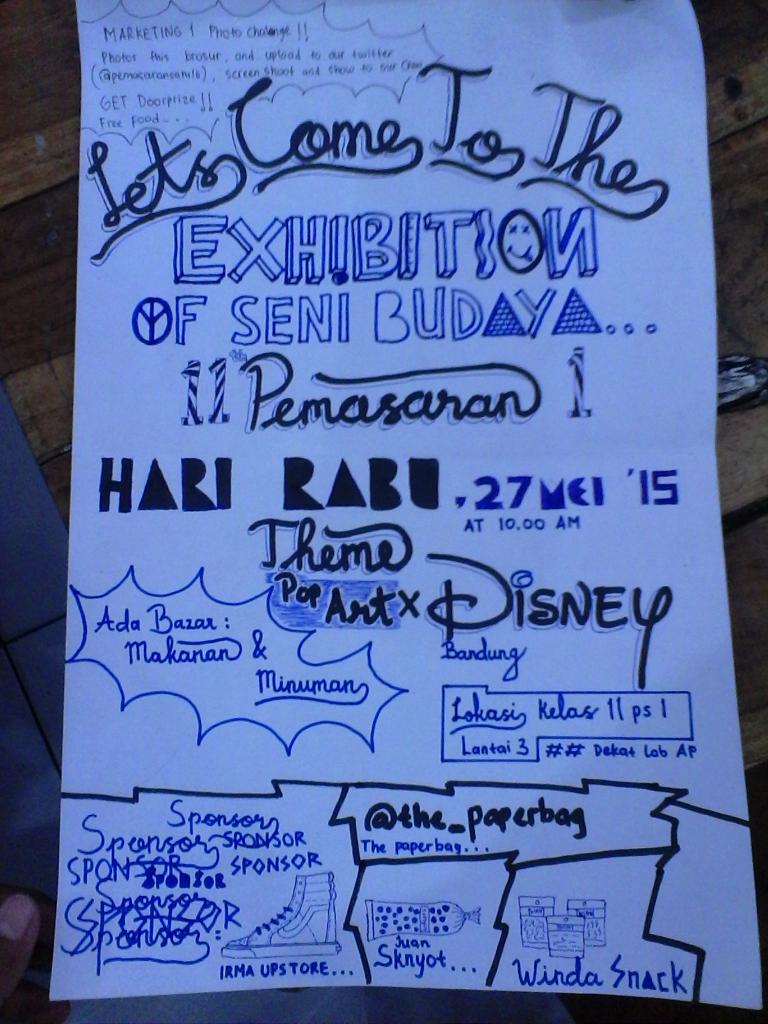 MARKETING 1 Photo challenge !!
Photos this brosur, and upload to our twitter
(@pemasaransatu16), screen shoot and show to our
GET Doorprize !!
Free food...
Lets Come To The
EXHIBITION
OF SENI BUDAYA...
11th Pemasaran 1
HARI RABU, 27 MEI '15
AT 10.00 AM
Theme
Pop Art x DISNEY
Bandung
Ada Bazar:
Makanan &
Minuman
Lokasi Kelas 11 ps 1
Lantai 3 ## Dekat Lab AP
Sponsor
Sponsor SPONSOR
SPONSOR SPONSOR
SPONSOR
Sponsor
SPONSOR
Sponsor:
IRMA UPSTORE...
@the_paperbag
The paperbag...
Juan
Sknyot...
Winda Snack